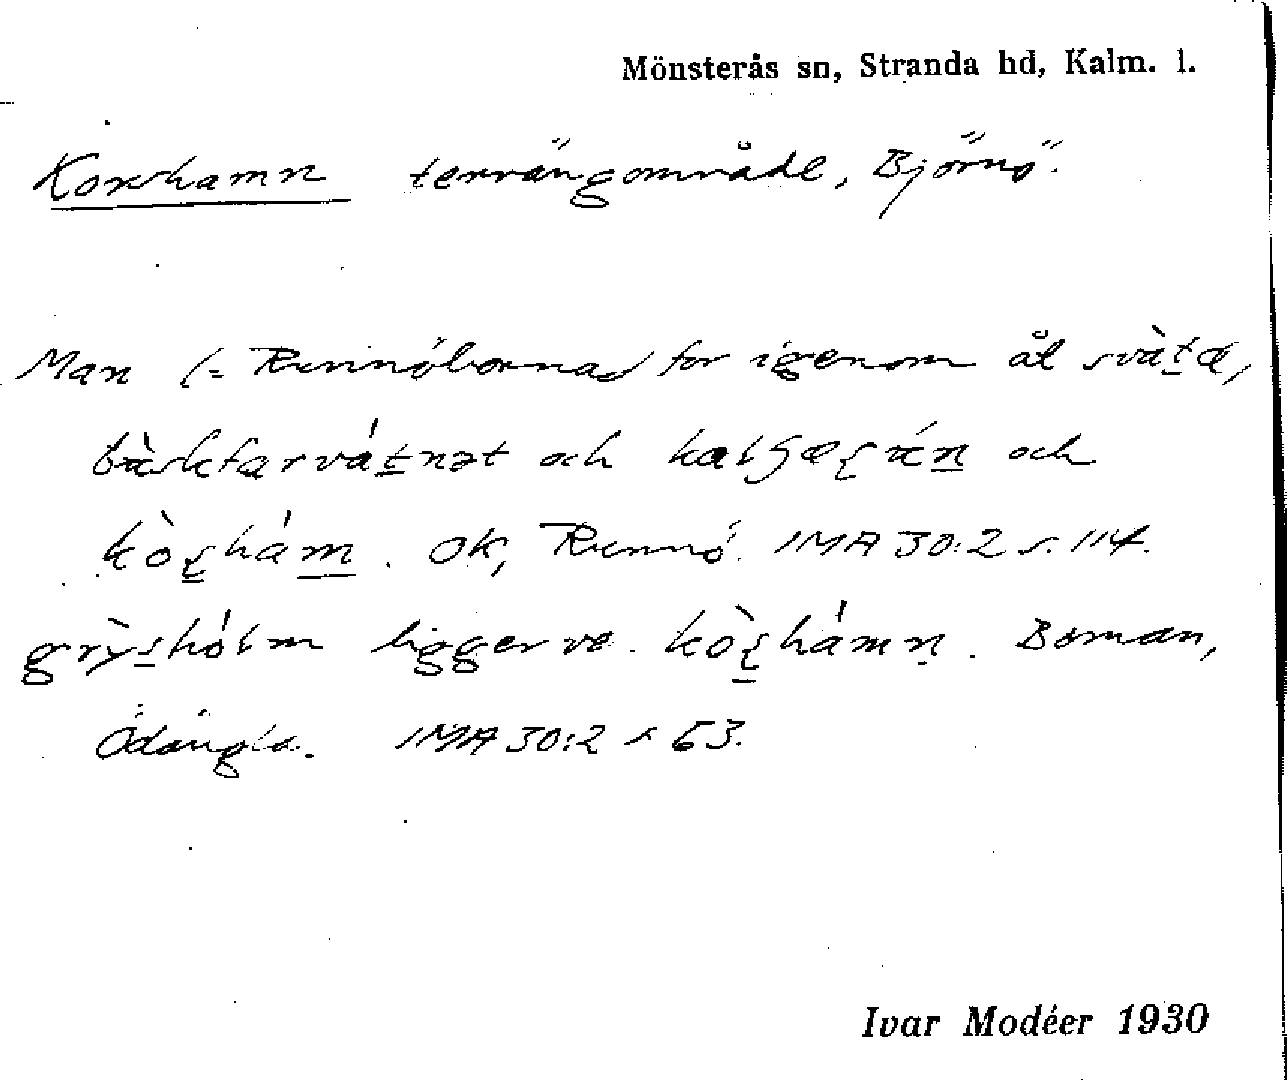 Mönsterås sn, Stranda hd, Kalm. l.
Korshamn terrängområde, Björnö.
Man (= Runnöborna) for igenom ål svàta,
och och
kòshám. OK, Runnö. IMA 30:2 s. 114.
grỳshólm ligger ve kòshámn. Boman,
Ödängla. IMA 30:2 s 63.
Ivar Modéer 1930